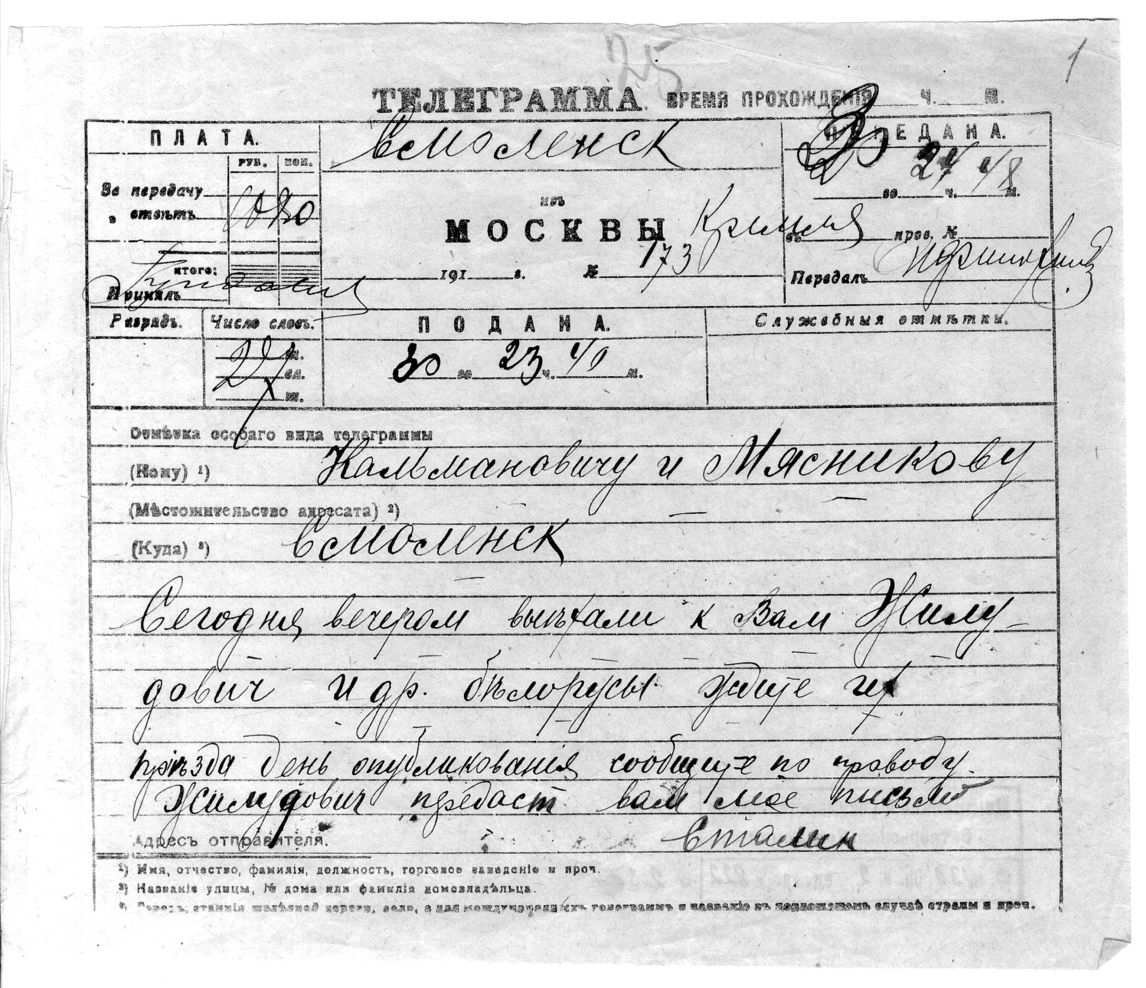 25
1
ТЕЛЕГРАММА. ВРЕМЯ ПРОХОЖДЕНІЯ Ч. М.
ПЛАТА.
РУБ. КОП.
За передачу
" отвѣтъ
10 80
ИТОГО:
Принялъ
Смоленск
изъ
МОСКВЫ Кремля
191 г. № 173
ПЕРЕДАНА.
30 24 48
го ч. м.
въ пров. №
Передалъ
Разрядъ.
Число словъ.
27
ПОДАНА.
30 го 23 ч. 40 м.
Служебныя отмѣтки.
Отмѣтка особаго вида телеграммы
(Кому) ¹) Кальмановичу и Мясникову
(Мѣстожительство адресата) ²)
(Куда) ³) Смоленск
Сегодня вечером выѣхали к Вам Жилу-
дович и др. бѣлорусы ждите их
приѣзда день опубликованія сообщите по проводу.
Жилудович передаст вам мое письмо
Адресъ отправителя. Сталин
¹) Имя, отчество, фамилія, должность, торговое заведеніе и проч.
²) Названіе улицы, № дома или фамилія домовладѣльца.
³) Городъ, станція желѣзной дороги, село, а для международныхъ телеграммъ и названіе въ подлежащемъ случаѣ страны и проч.